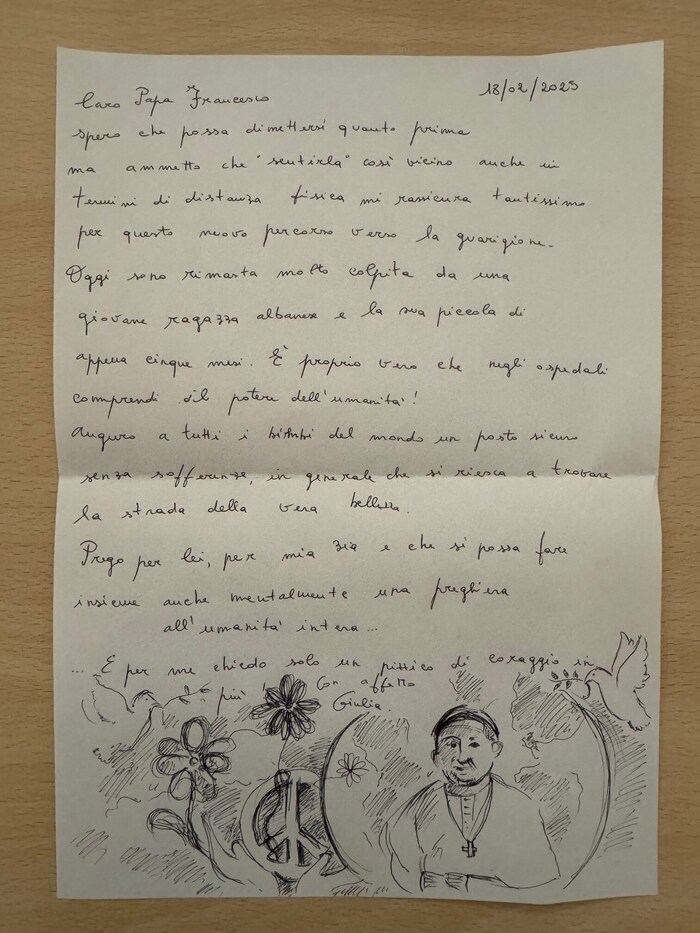 18/02/2025
Caro Papa Francesco
spero che possa dimettersi quanto prima
ma ammetto che "sentirla" così vicino anche in
termini di distanza fisica mi rassicura tantissimo
per questo nuovo percorso verso la guarigione.
Oggi sono rimasta molto colpita da una
giovane ragazza albanese e la sua piccola di
appena cinque mesi. È proprio vero che negli ospedali
comprendi il potere dell'umanità!
Auguro a tutti i bimbi del mondo un posto sicuro
senza sofferenze, in generale che si riesca a trovare
la strada della vera bellezza.
Prego per lei, per mia zia e che si possa fare
insieme anche mentalmente una preghiera
all'umanità intera...
... E per me chiedo solo un pittico di coraggio in
più!
Con affetto
Giulia.